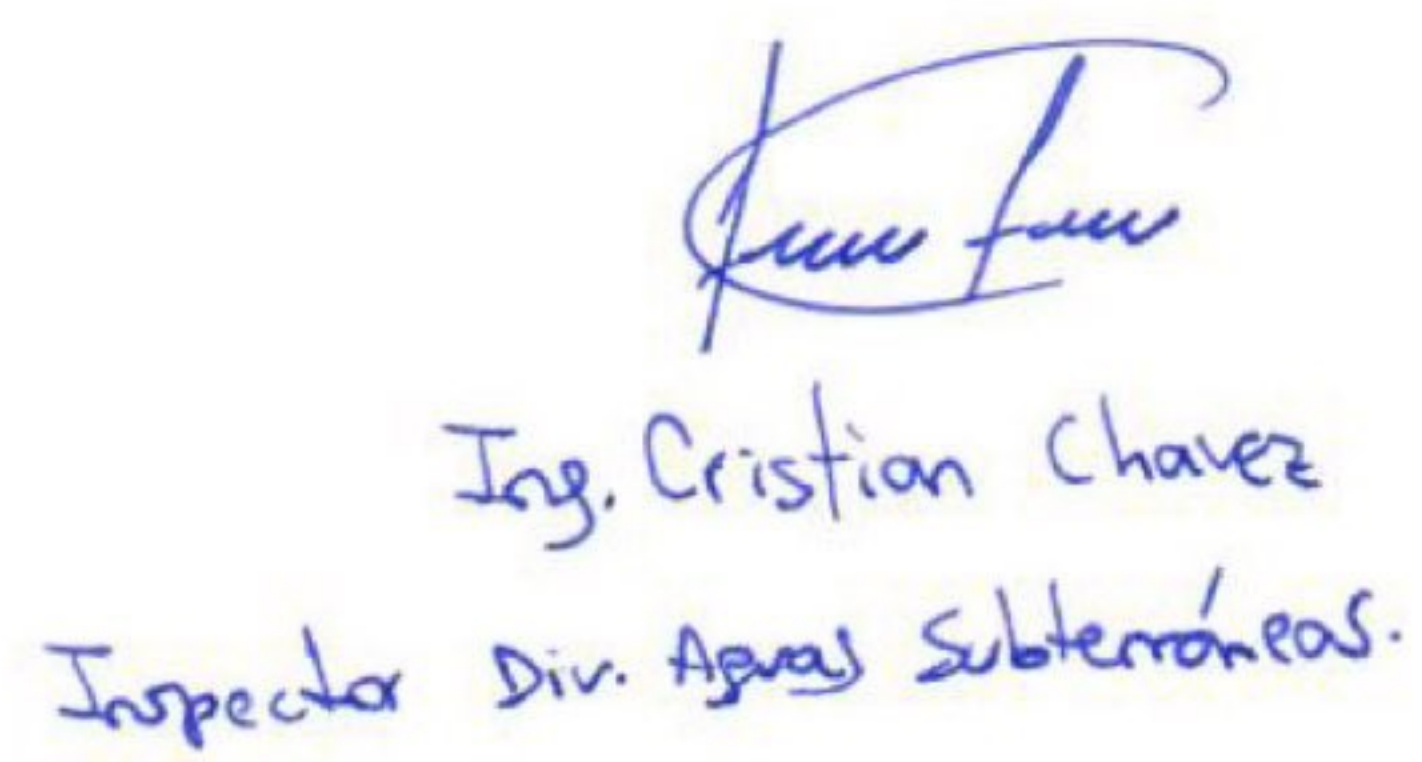 Ing. Cristian Chavez
Inspector Div. Aguas Subterráneas.